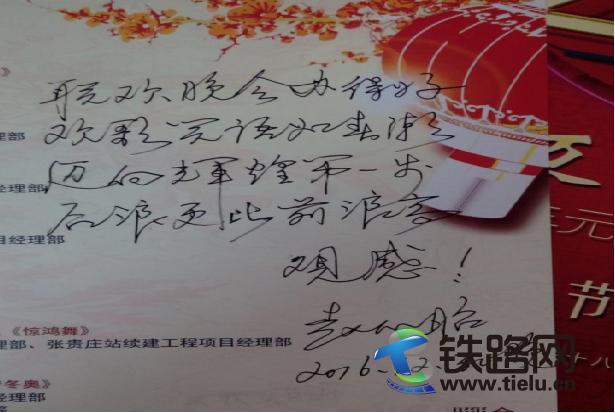 联欢晚会办得好
欢歌笑语如春潮
迈向光辉煌第一步
后浪更比前浪高
观感！
2016.12.
理部
经理部
目经理部
《惊鸿舞》
理部、张贵庄站续建工程项目经理部
冬奥》
经理部
元
节
十八
铁路网
www.tielu.cn